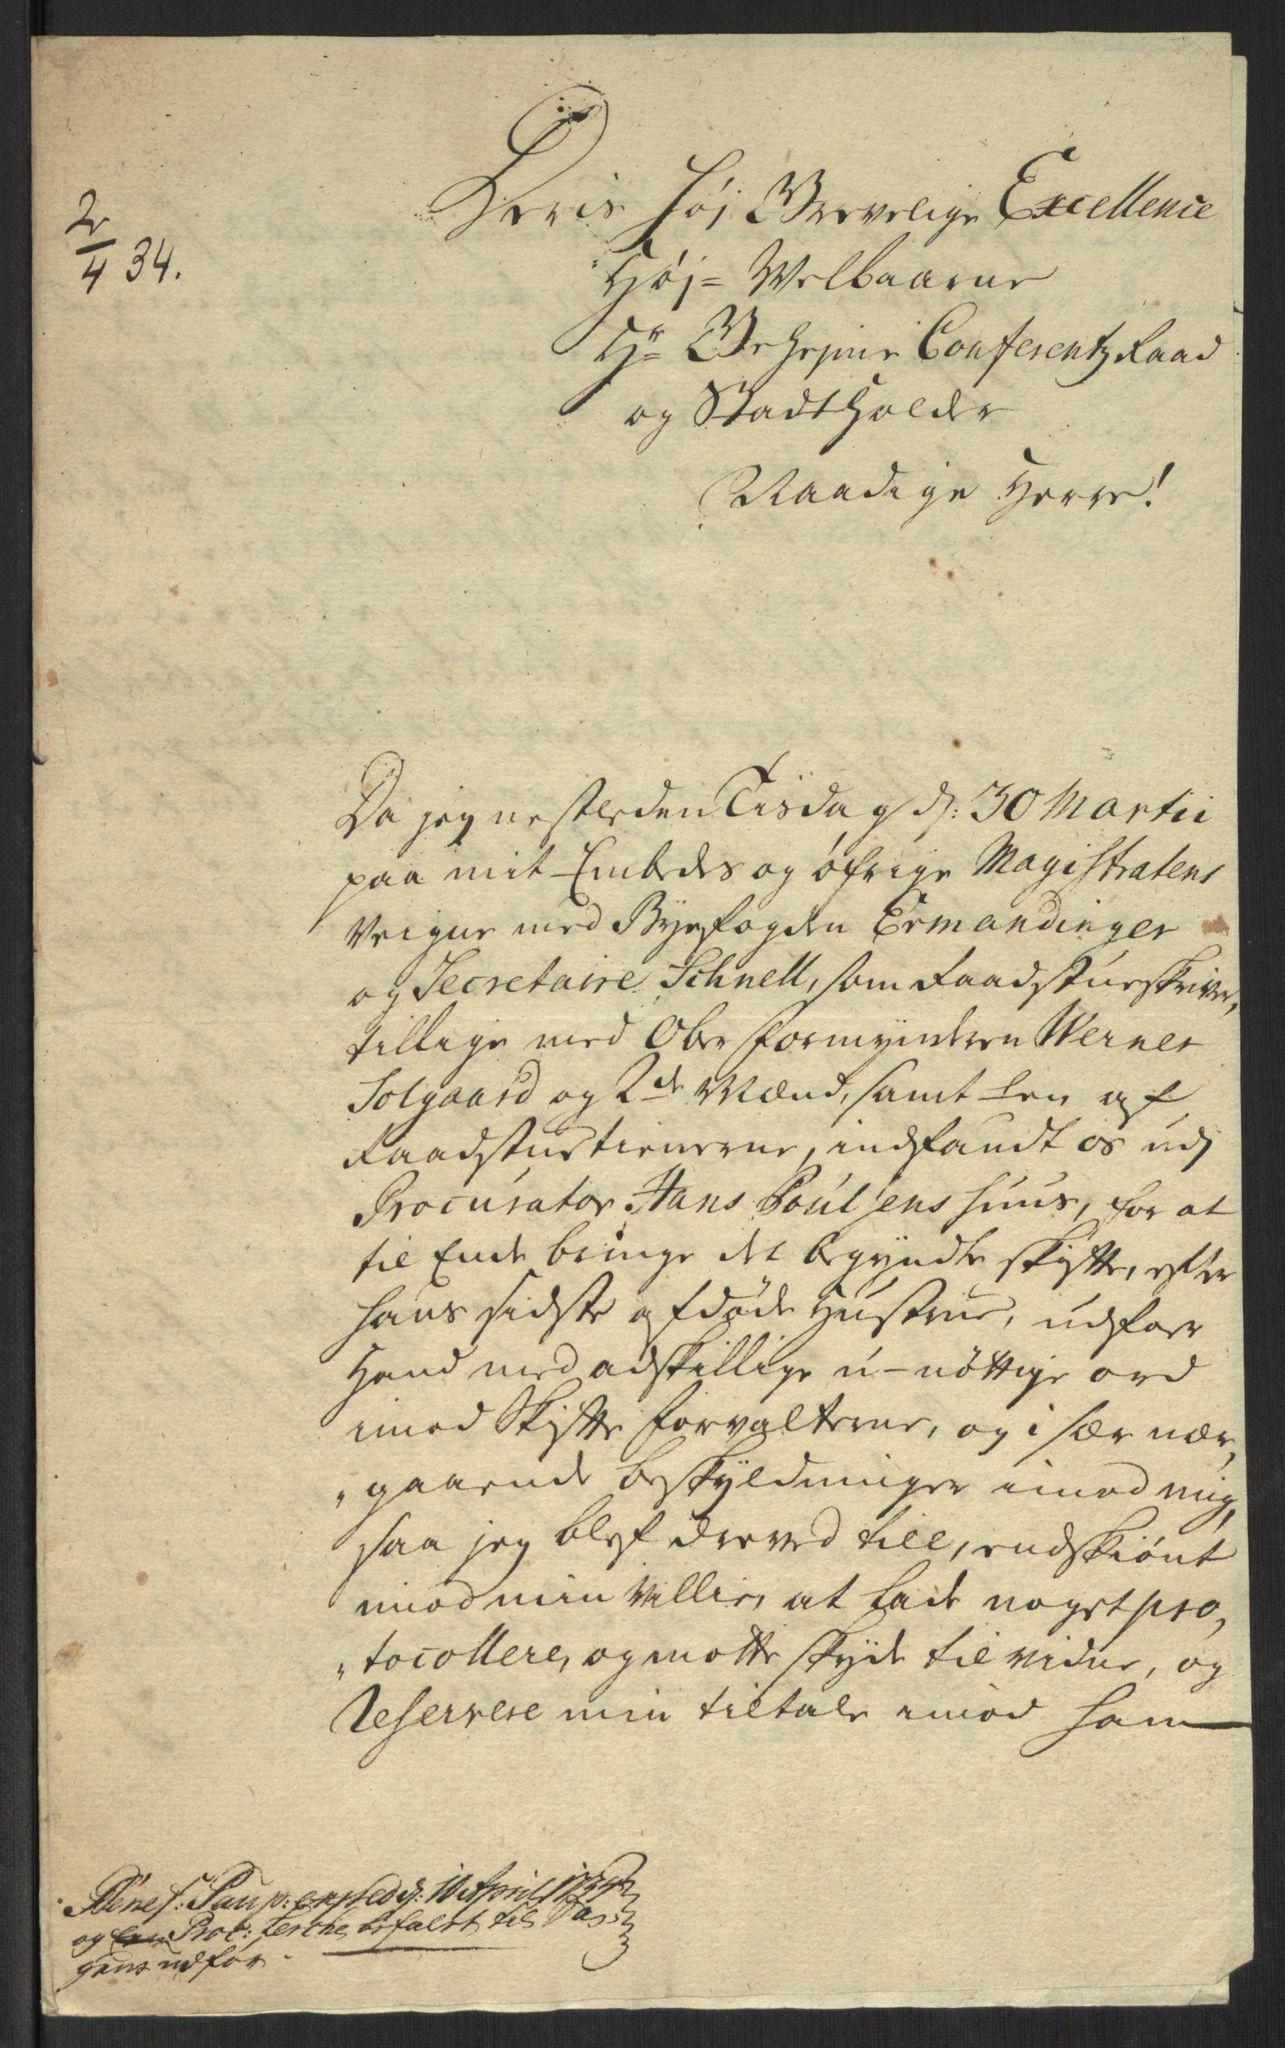 2/4 34.
Deris Høj Grevelige Excellence
Høj= Welbaarne
Hr Geheime Conferentz Raad
og Stadtholder
Naadige Herre!
Da jeg nestleden Tisdag d: 30 Martii
paa mit Embeds og øfrige Magistratens
Veigne med Byefogden Ermandinger
og Secretaire Schnell, som Raadstueskriver,
tillige med Ober formynderen Werner
Solgaard og 2de Mænd, samt en af
Raadstuetienerne, indfandt os udj
Procurator Hans Poulsens Huus, for at
til Ende bringe det begyndte skifte, efter
hans sidste afdøde Hustrue, udfoer
Hand med adskillige u-nøttige ord
imod Skifte forvalterne, og i sær nær,
"gaaende beskyldninger imod mig,
saa jeg blef dreved till, endskiønt
imod min Villie, at lade noget pro,
"tocollere, og motte skyde til vidne, og
Reservere min tiltale imod ham
Benef: Paup: exped d: 10 April 1734
og Proc: Lerche befalet til Sa
gens udfør